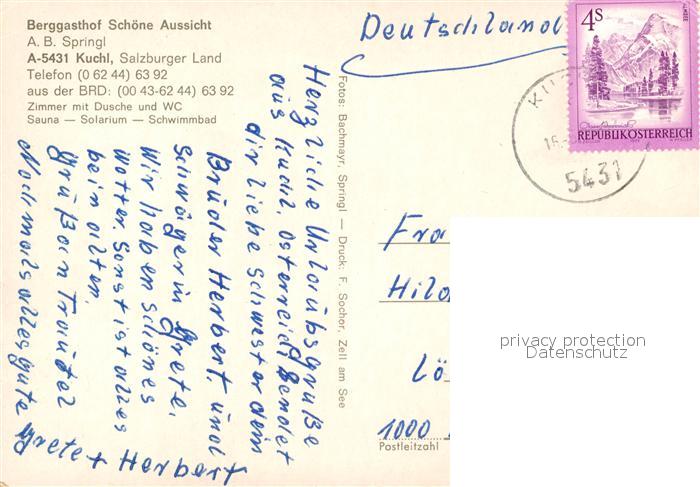 Berggasthof Schöne Aussicht
A. B. Springl
A-5431 Kuchl, Salzburger Land
Telefon (0 62 44) 63 92
aus der BRD: (00 43-62 44) 63 92
Zimmer mit Dusche und WC
Sauna — Solarium — Schwimmbad
Deutschland
4S
REPUBLIK ÖSTERREICH
5431
Herzliche Urlaubsgrüße
aus Kuchl, Österreich sendet
dir liebe Schwester dein
Bruder Herbert, und
Schwägerin Grete.
Wir haben schönes
Wetter. Sonst ist alles
beim alten.
Gruß an Traudel
Nochmals alles gute
Grete + Herbert
Fotos: Bachmayr, Springl — Druck: F. Socher, Zell am See
Fra
Hild
Lö
1000
Postleitzahl
privacy protection
Datenschutz